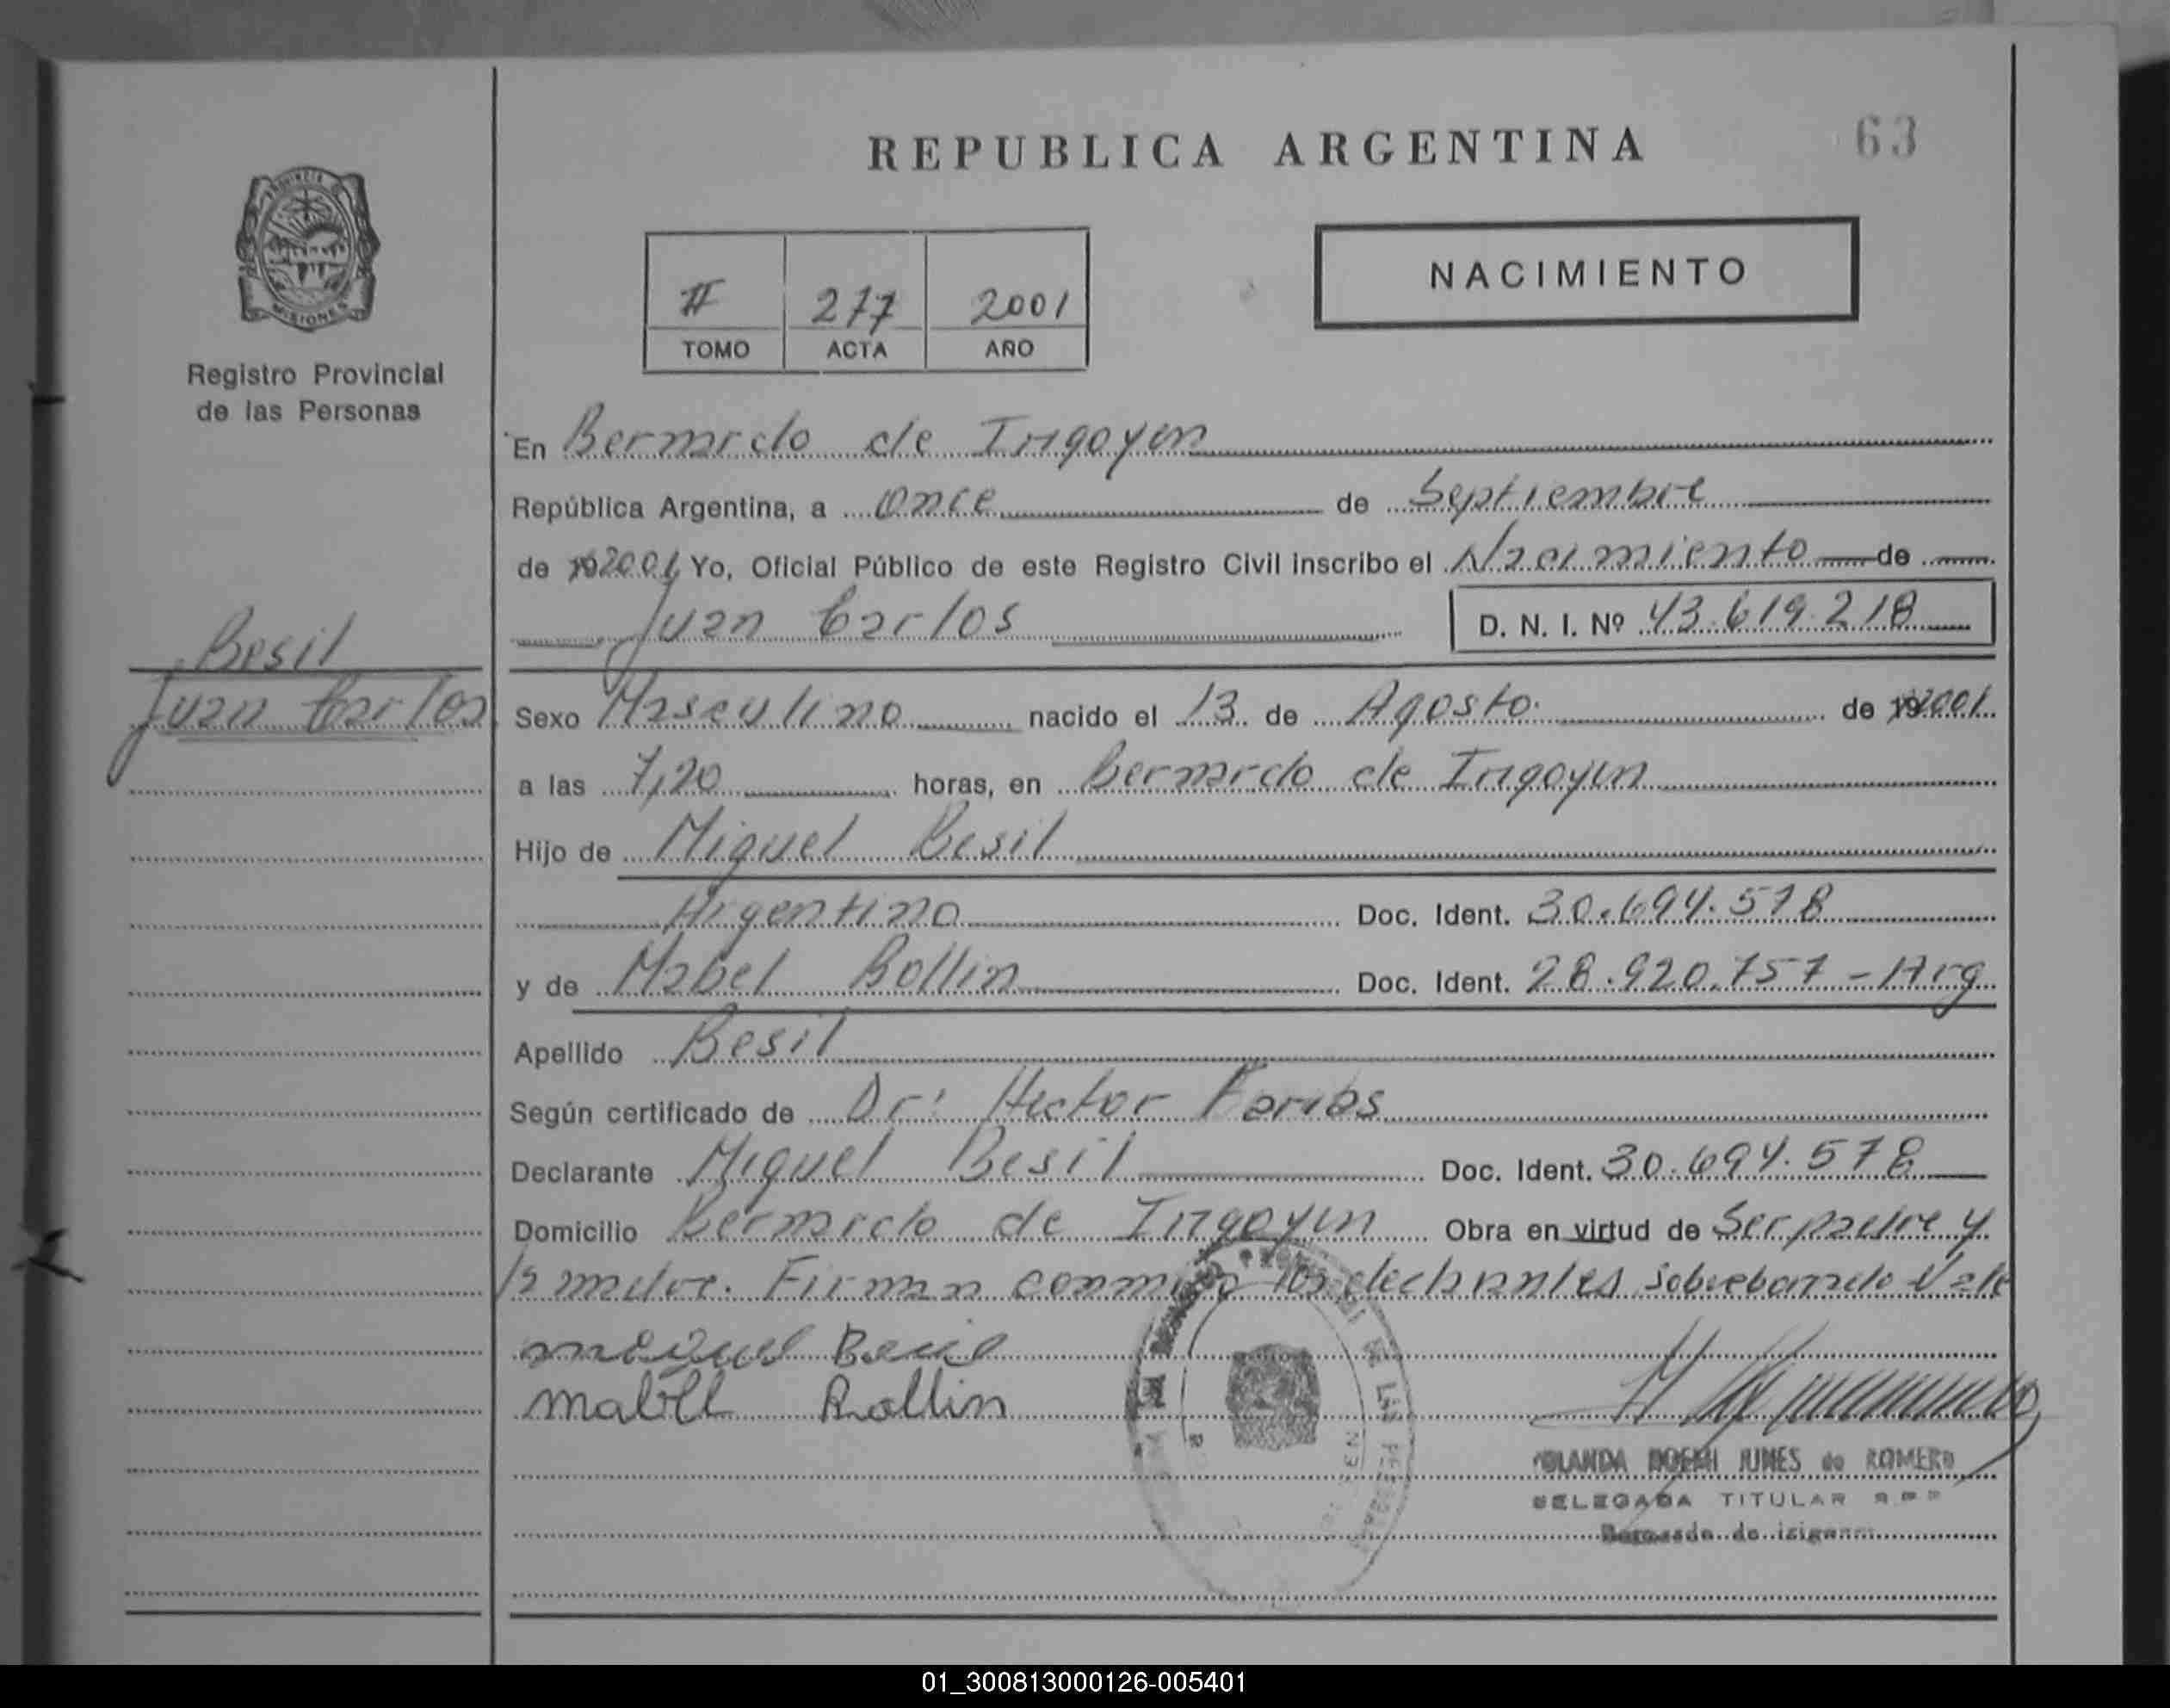 REPUBLICA ARGENTINA
63
PROVINCIA DE
MISIONES
Registro Provincial
de las Personas
NACIMIENTO
II 277 2001
TOMO ACTA AÑO
En Bernardo de Irigoyen
República Argentina, a once de Septiembre
de 2001 Yo, Oficial Público de este Registro Civil inscribo el Nacimiento de
Juan Carlos D. N. I. Nº 43.619.218
Besil
Juan Carlos
Sexo Masculino nacido el 13 de Agosto de 2001
a las 7,20 horas, en Bernardo de Irigoyen
Hijo de Miguel Besil
Argentino Doc. Ident. 30.694.578
y de Mabel Rollin Doc. Ident. 28.920.757 - Arg
Apellido Besil
Según certificado de Dr: Hector Farias
Declarante Miguel Besil Doc. Ident. 30.694.578
Domicilio Bernardo de Irigoyen Obra en virtud de Ser padre y
la madre. Firman conmigo los declarantes Sobreborrado Vale
miguel Besil
mabel Rollin
YOLANDA NOEMI JUNES de ROMERO
DELEGADA TITULAR R P P
Bernardo de Irigoyen
01_300813000126-005401